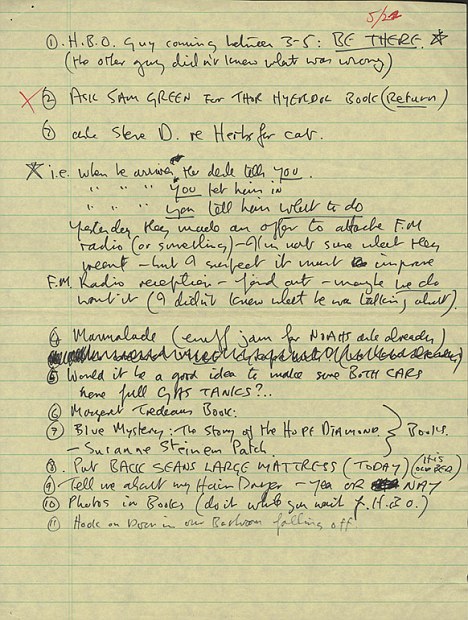 5/22
① H.B.O. Guy coming between 3-5: BE THERE.
(the other guy didn't know what was wrong)
② ASK SAM GREEN FOR THOR HYERDOL BOOK (Return)
③ Steve D. re Herbs for cat.
i.e. when he arrives the desk tells YOU.
" " " " YOU let him in
" " " " YOU tell him what to do
Yesterday they made an offer to attache F.M
radio (or something) – I'm not sure what they
meant – but I suspect it must improve
F.M. Radio reception – find out – maybe we do
want it (I didn't know what he was talking about).
④ Marmalade (enuff jam for NOAHS ark already)
⑤ Would it be a good idea to make sure BOTH CARS
have full GAS TANKS?..
⑥ Margaret Trudeau Book.
⑦ Blue Mystery: The Story of the HOPE DIAMOND
– Susanne Steinem Patch. Books.
⑧ PUT BACK SEANS LARGE MATTRESS (TODAY) (ITS OVER)
⑨ Tell me about my Hair Dryer – yea OR NAY
⑩ Photos in Books (do it while you wait f. H.B.O.)
⑪ Hook on Door in our Bathroom falling off